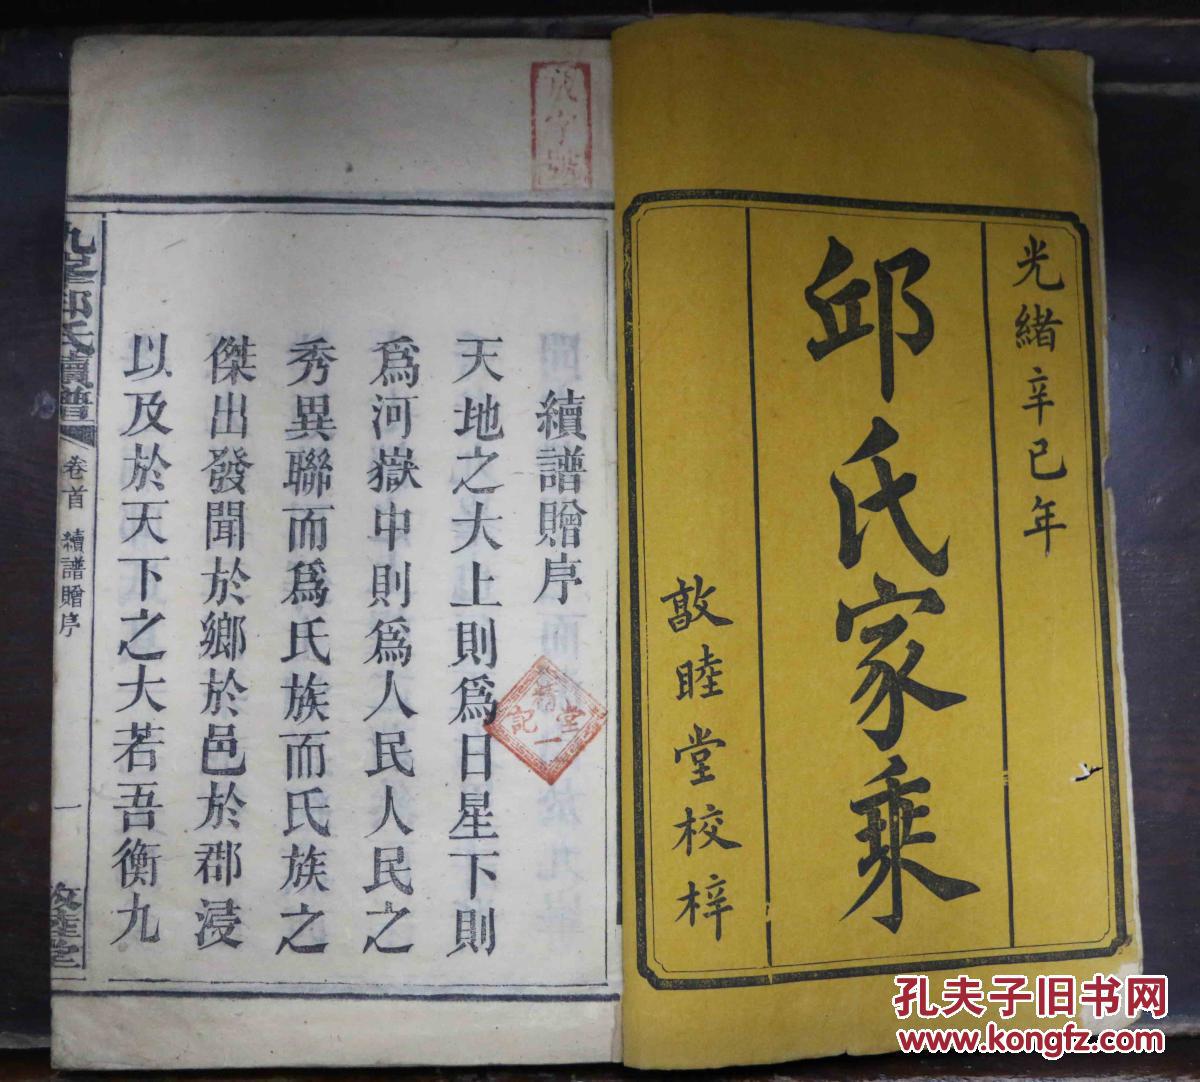 光緒辛巳年
邱氏家乘
敦睦堂校梓
續譜贈序
天地之大上則爲日星下則
爲河嶽中則爲人民人民之
秀異聯而爲氏族而氏族之
傑出發聞於鄉於邑於郡浸
以及於天下之大若吾衡九
邱氏續譜
卷首
續譜贈序
一
敦睦堂
字號
堂記
孔夫子旧书网
www.kongfz.com